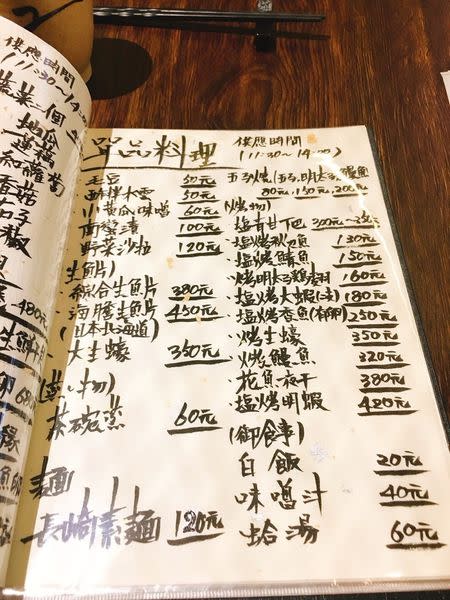 供應時間
11:30~14:00
單品料理
供應時間
(11:30~14:00)
毛豆 50元
醋拌水雲 50元
小黃瓜味噌 60元
南蠻漬 100元
野菜沙拉 120元
(生魚片)
綜合生魚片 380元
海膽生魚片 450元
(日本北海道)
大生蠔 350元
(蒸物)
茶碗蒸 60元
麵
長崎素麵 120元
玉子燒(玉子,明太子,鰻魚
80元,150元,200元
(烤物)
塩青甘下巴
塩烤秋刀魚 130元
塩烤鯖魚 150元
烤明太子雞翅 160元
塩烤大蝦 180元
塩烤香魚(有卵) 250元
烤生蠔 350元
烤鰻魚 320元
花魚一夜干 380元
塩烤明蝦 420元
(御食事)
白飯 20元
味噌汁 40元
蛤湯 60元
地瓜
蓮藕
香菇
480元